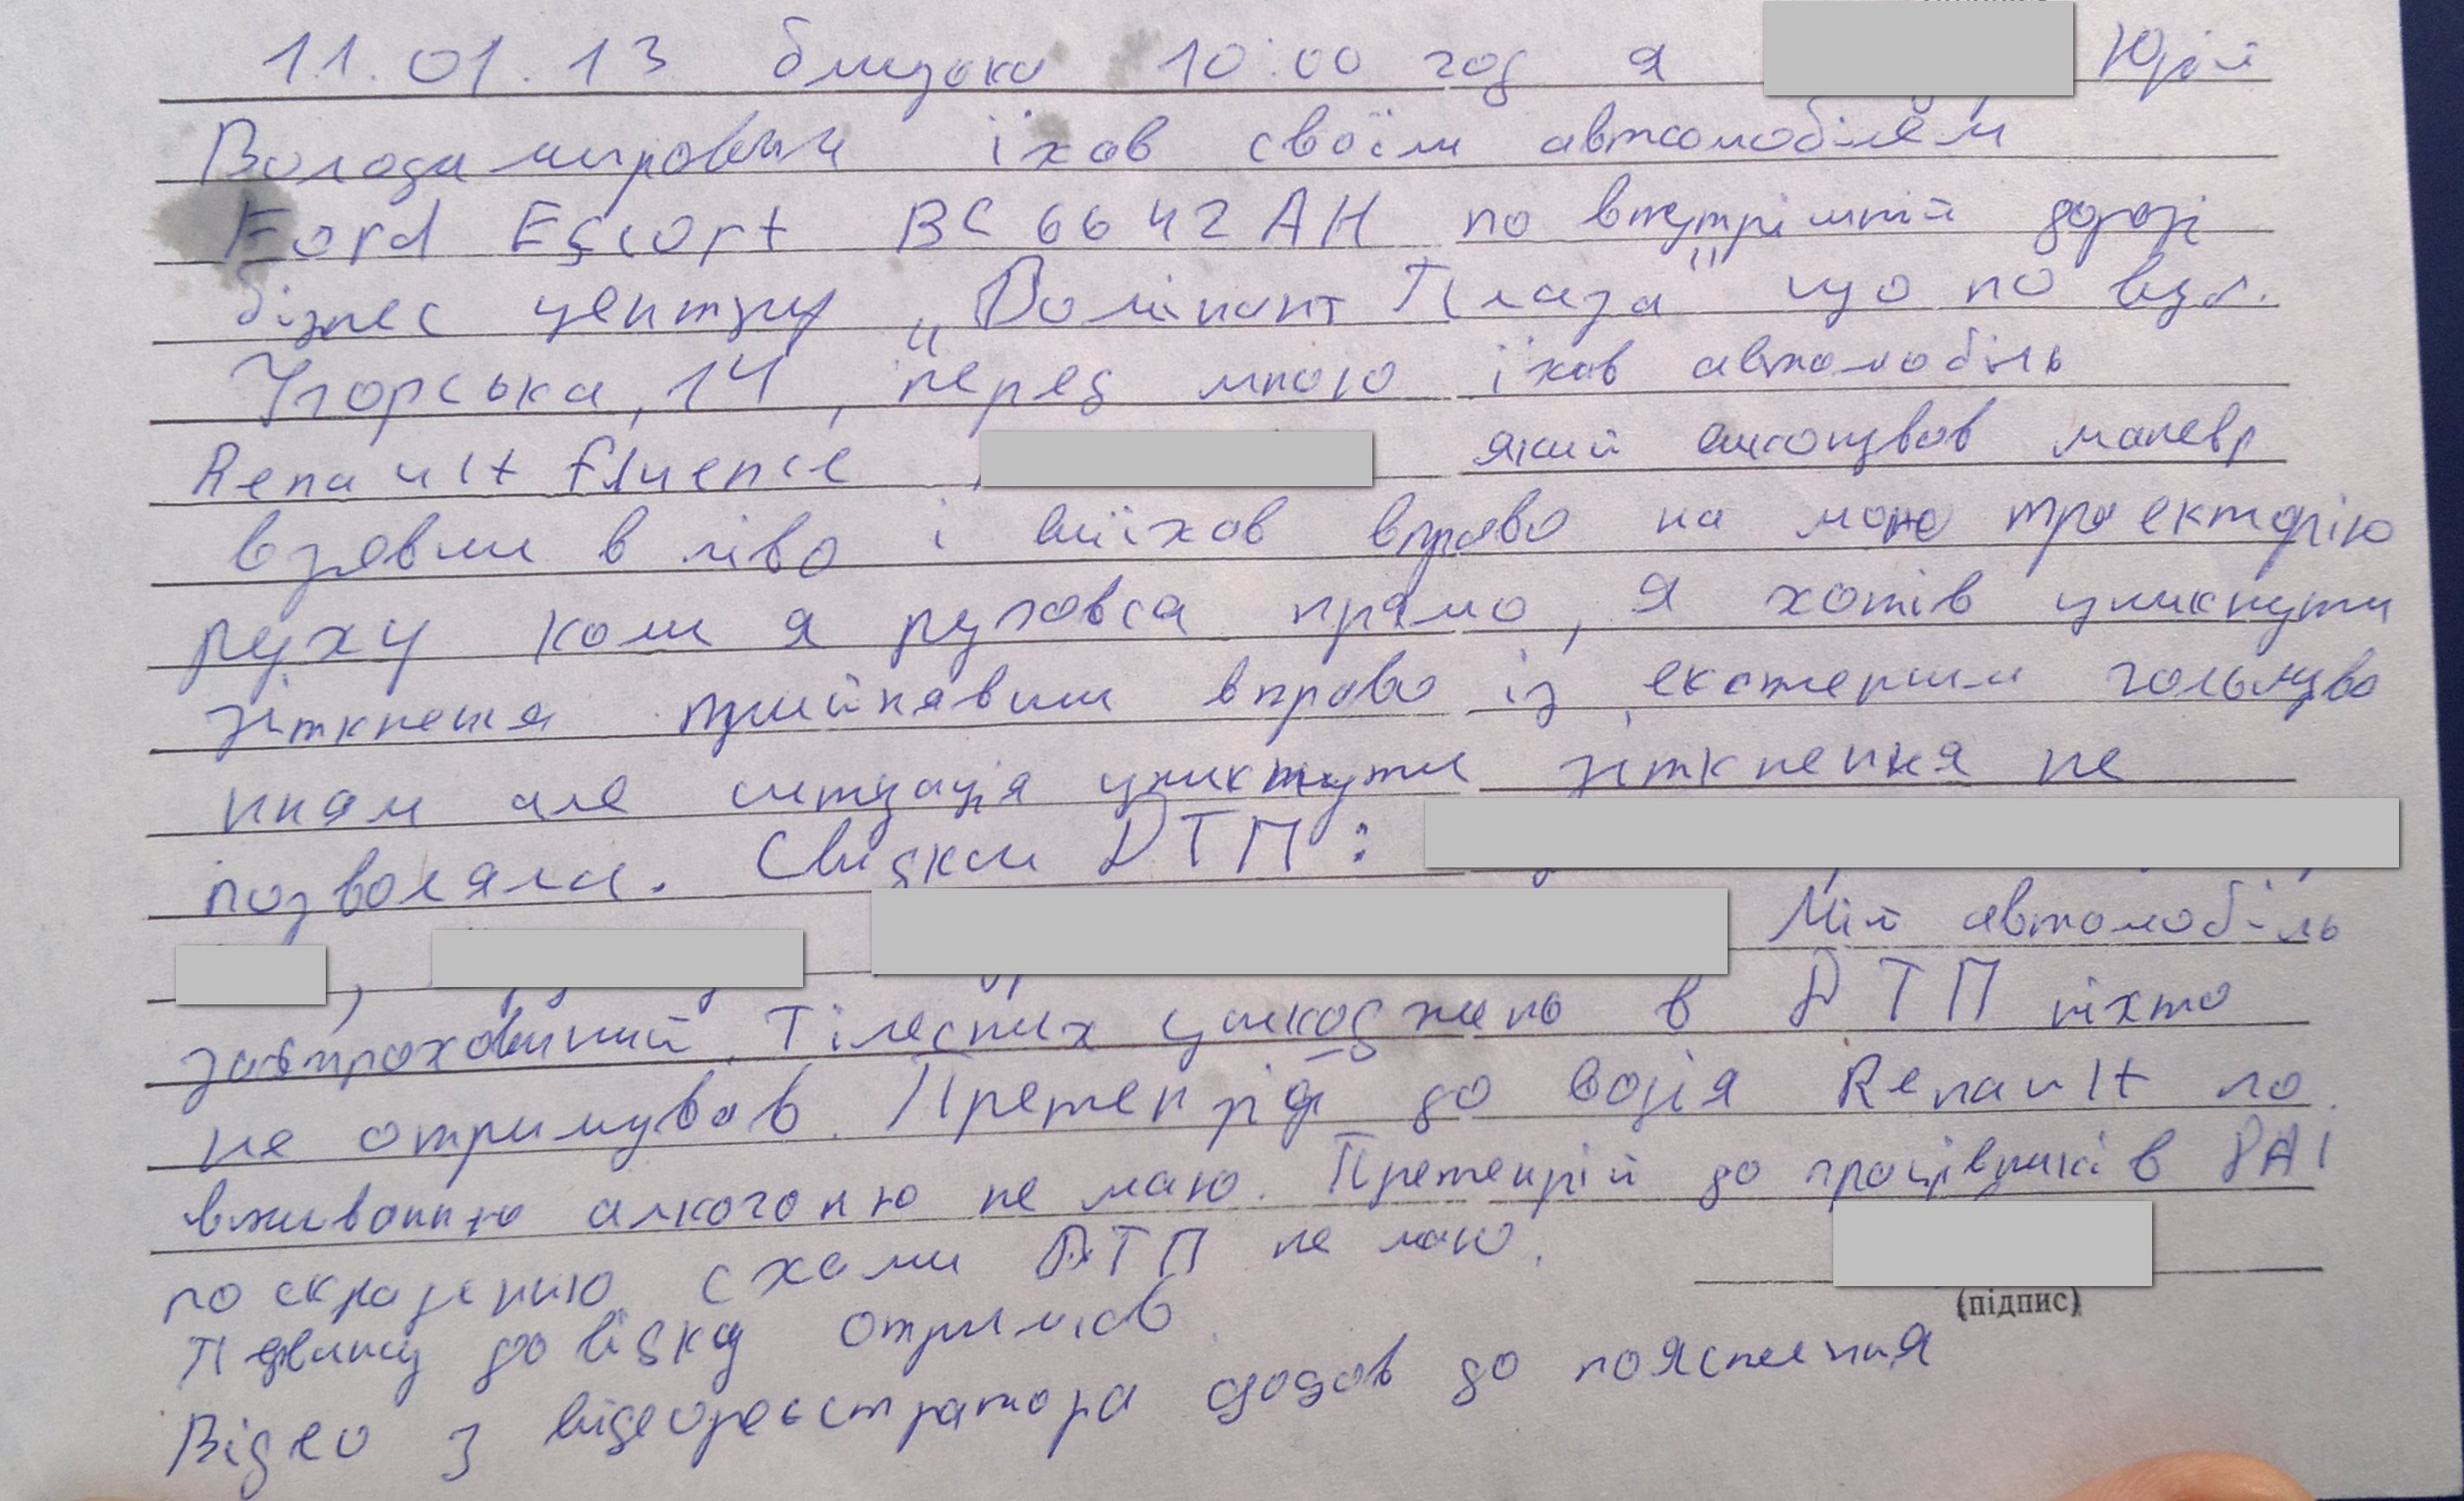 11.01.13 близько 10:00 год я Юрій
Володимирович їхав своїм автомобілем
Ford Escort ВС 6642 АН по внутрішній дорозі
бізнес центру „Домінант Плаза" що по вул.
Угорська, 14, перед мною їхав автомобіль
Renault fluence який виконував маневр
взявши в ліво і виїхав вправо на мою траекторію
руху коли я рухався прямо, я хотів уникнути
зіткненя прийнявши вправо із екстерним гальмува
нням але ситуація уникнути зіткнення не
позволяла. Свідки ДТП:
, Мій автомобіль
застрахований. Тілесних ушкоджень в ДТП ніхто
не отримував. Претензій до водія Renault по
вживанню алкоголю не маю. Претензій до працівників ДАІ
по складенню схеми ДТП не маю.
(підпис)
довідку отримав.
Відео з відеореєстратора додав до пояснення